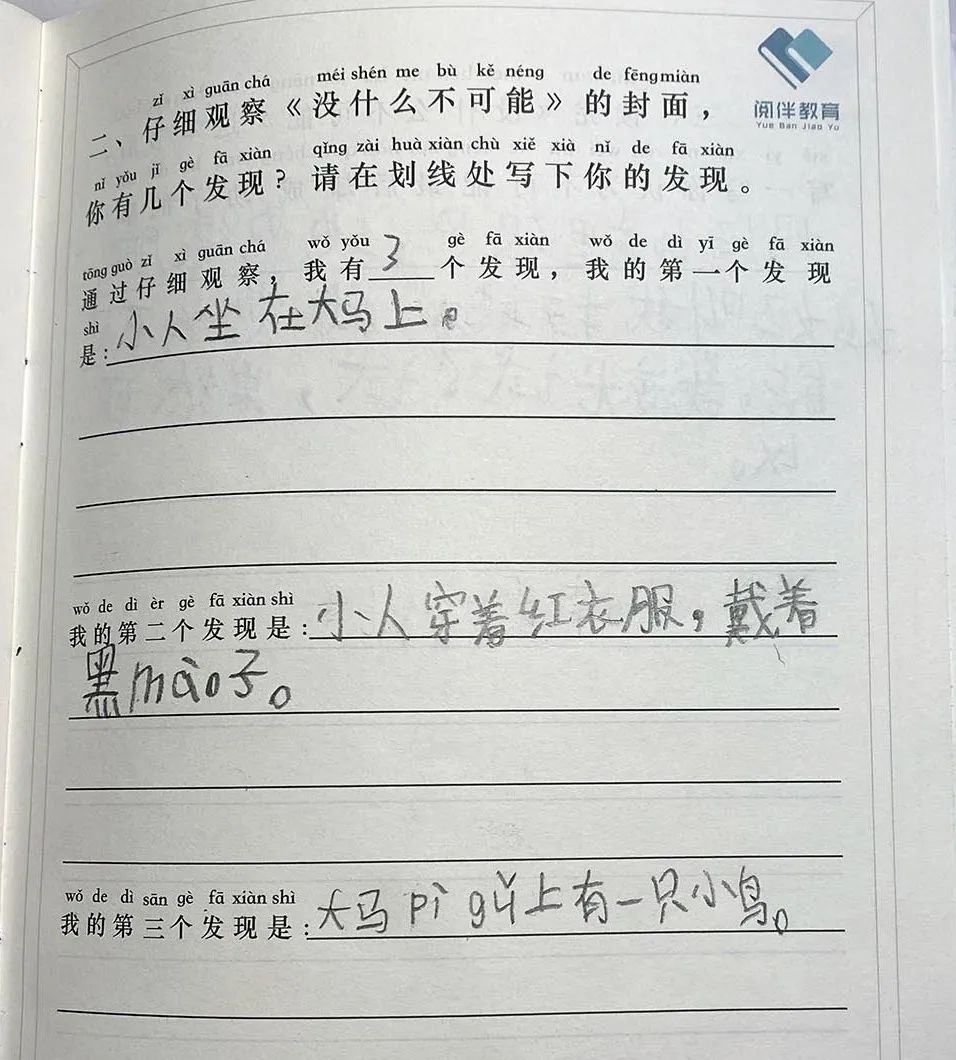 阅伴教育
Yue Ban Jiao Yu
zǐ xì guān chá méi shén me bù kě néng de fēng miàn
二、仔细观察《没什么不可能》的封面，
nǐ yǒu jǐ gè fā xiàn qǐng zài huà xiàn chù xiě xià nǐ de fā xiàn
你有几个发现？请在划线处写下你的发现。
tōng guò zǐ xì guān chá wǒ yǒu gè fā xiàn wǒ de dì yī gè fā xiàn
通过仔细观察，我有3个发现，我的第一个发现
shì
是：小人坐在大马上。
wǒ de dì èr gè fā xiàn shì
我的第二个发现是：小人穿着红衣服，戴着
黑mào子。
wǒ de dì sān gè fā xiàn shì
我的第三个发现是：大马pì gǔ上有一只小鸟。